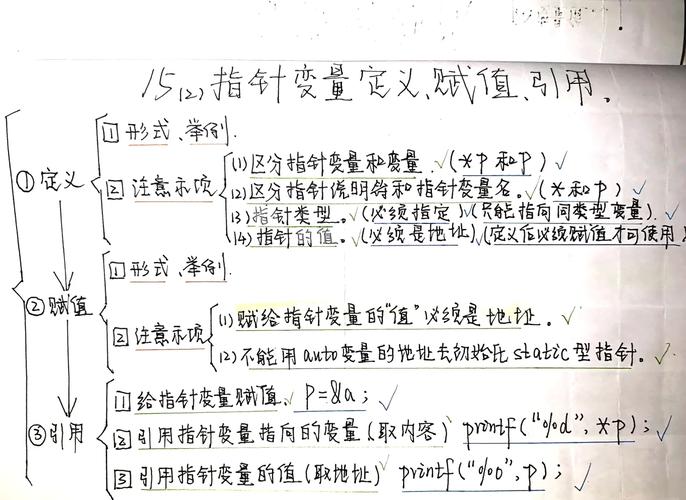 15(2)指针变量定义、赋值、引用。
①定义
1 形式、举例.
2 注意事项
(1)区分指针变量和变量.√(*P和P)√
(2)区分指针说明符和指针变量名。√(*和P)√
(3)指针类型。√(必须指定)√(只能指向同类型变量).√
(4)指针的值。√(必须是地址)√(定义后必须赋值才可使用
②赋值
1 形式、举例.
2 注意事项
(1)赋给指针变量的"值"必须是地址。√
(2)不能用auto变量的地址去初始化static型指针。√
③引用
1 给指针变量赋值、P=&a;√
2 引用指针变量指向的变量(取内容)√ printf("%d",*p);√
3 引用指针变量的值(取地址)√ printf("%o",p);√